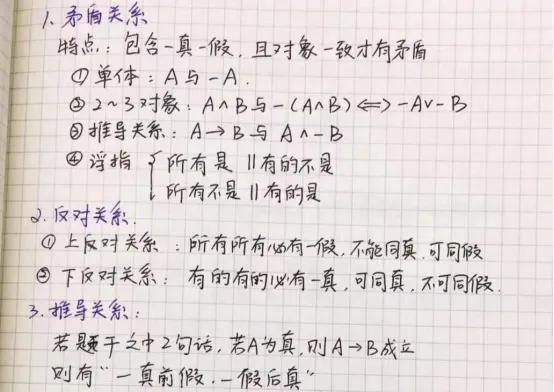 1. 矛盾关系
特点：包含一真一假，且对象一致才有矛盾
① 单体：A 与 -A.
② 2~3对象：A∧B 与 -(A∧B) <=> -A∨-B
③ 推导关系：A→B 与 A∧-B
④ 浮指 { 所有是 || 有的不是
所有不是 || 有的是
2. 反对关系.
① 上反对关系：所有所有必有一假，不能同真，可同假
② 下反对关系：有的有的必有一真，可同真，不可同假.
3. 推导关系：
若题干之中2句话，若A为真，则A→B成立
则有“一真前假，一假后真”